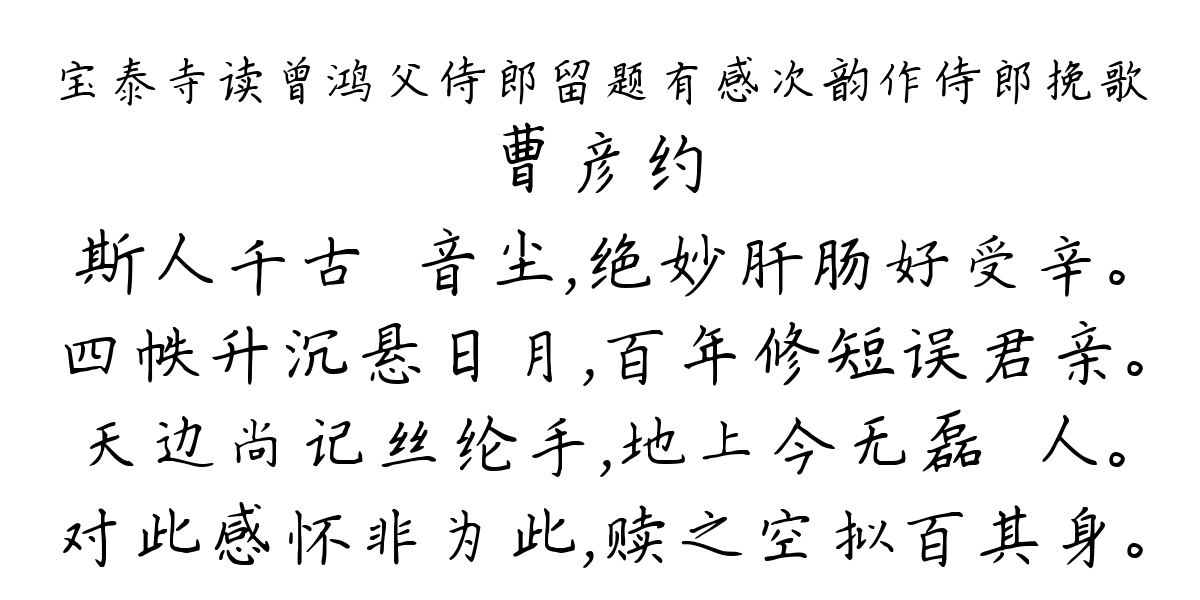 宝泰寺读曾鸿父侍郎留题有感次韵作侍郎挽歌
曹彦约
斯人千古 音尘,绝妙肝肠好受辛。
四帙升沉悬日月,百年修短误君亲。
天边尚记丝纶手,地上今无磊 人。
对此感怀非为此,赎之空拟百其身。